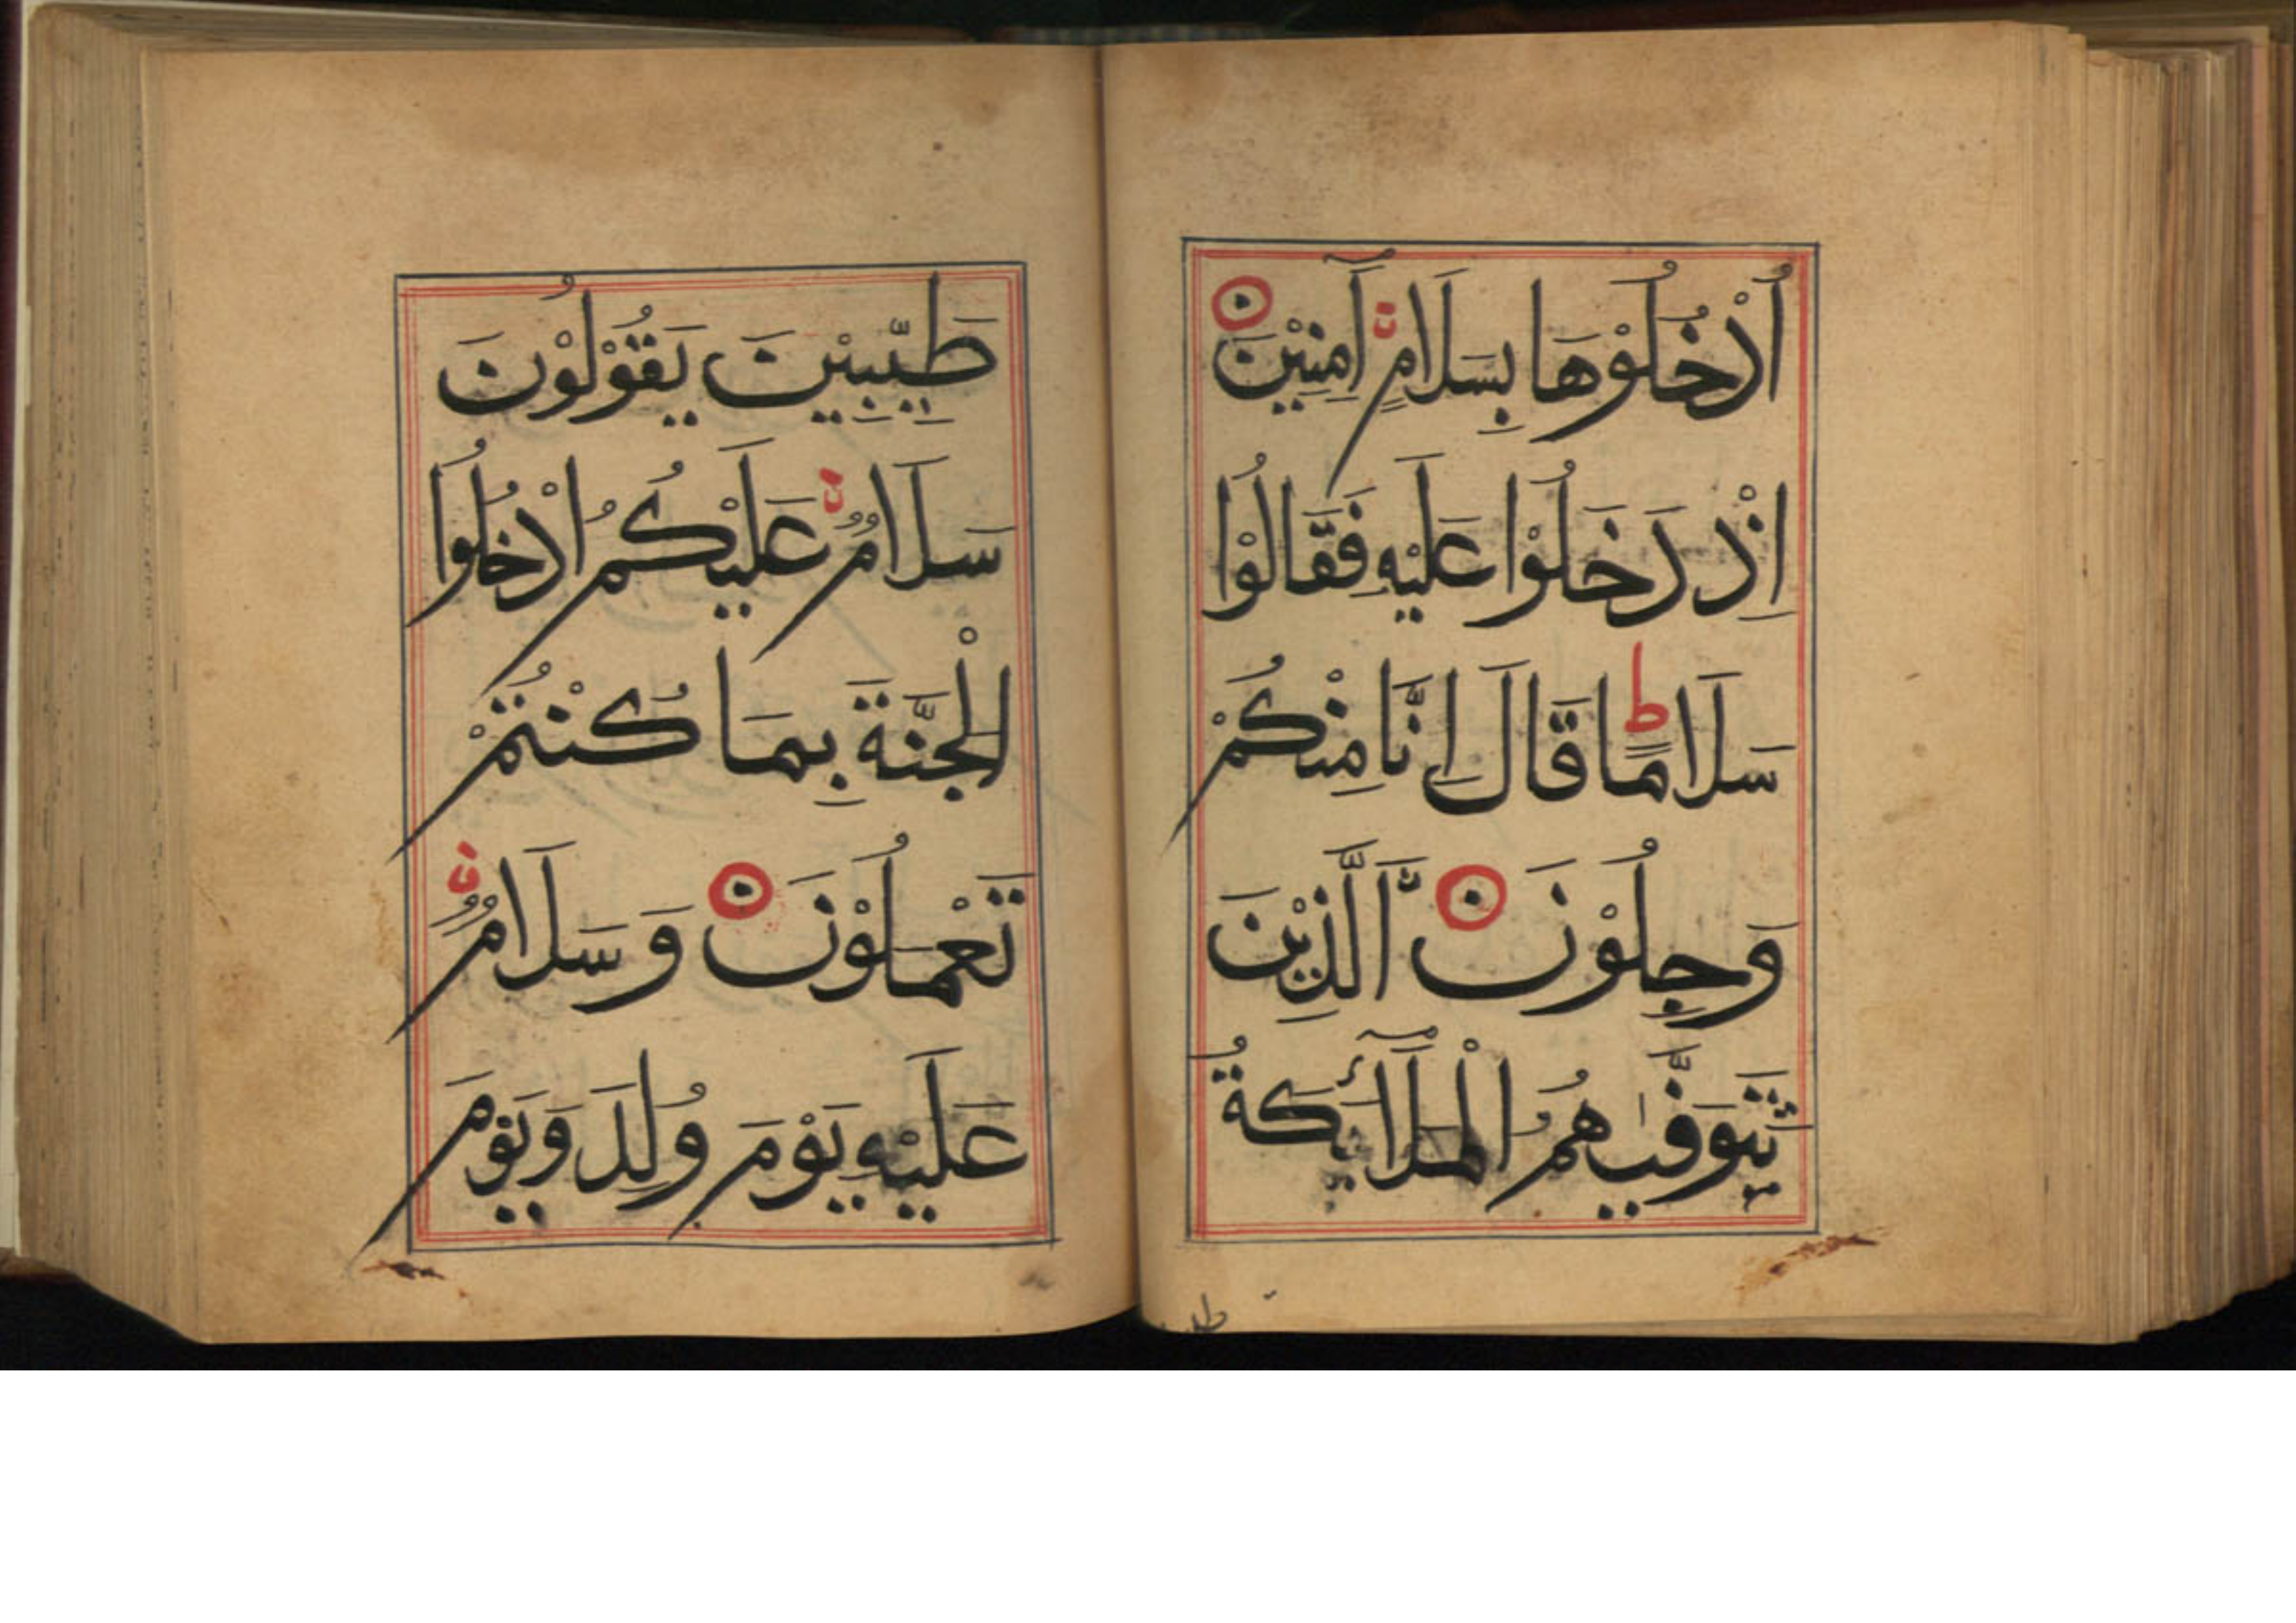 اُدْخُلُوْهَا بِسَلَامٍ آمِنِيْنَ
اِذْ دَخَلُوْا عَلَيْهِ فَقَالُوْا
سَلَامًا ط قَالَ اِنَّا مِنْكُمْ
وَجِلُوْنَ اَلَّذِيْنَ
تَتَوَفّٰيهُمُ الْمَلَآئِكَةُ
طَيِّبِيْنَ يَقُوْلُوْنَ
سَلَامٌ عَلَيْكُمُ ادْخُلُوا
الْجَنَّةَ بِمَا كُنْتُمْ
تَعْمَلُوْنَ وَسَلَامٌ
عَلَيْهِ يَوْمَ وُلِدَ وَيَوْمَ